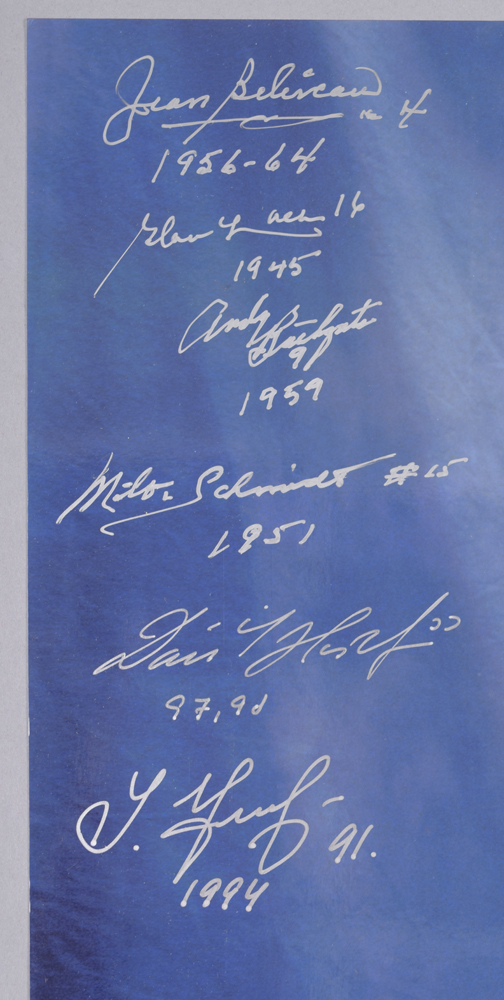 Jean Beliveau 4
1956-64
Elmer Lach 16
1945
Andy Bathgate
9
1959
Milt Schmidt #15
1951
97, 98
91.
1994